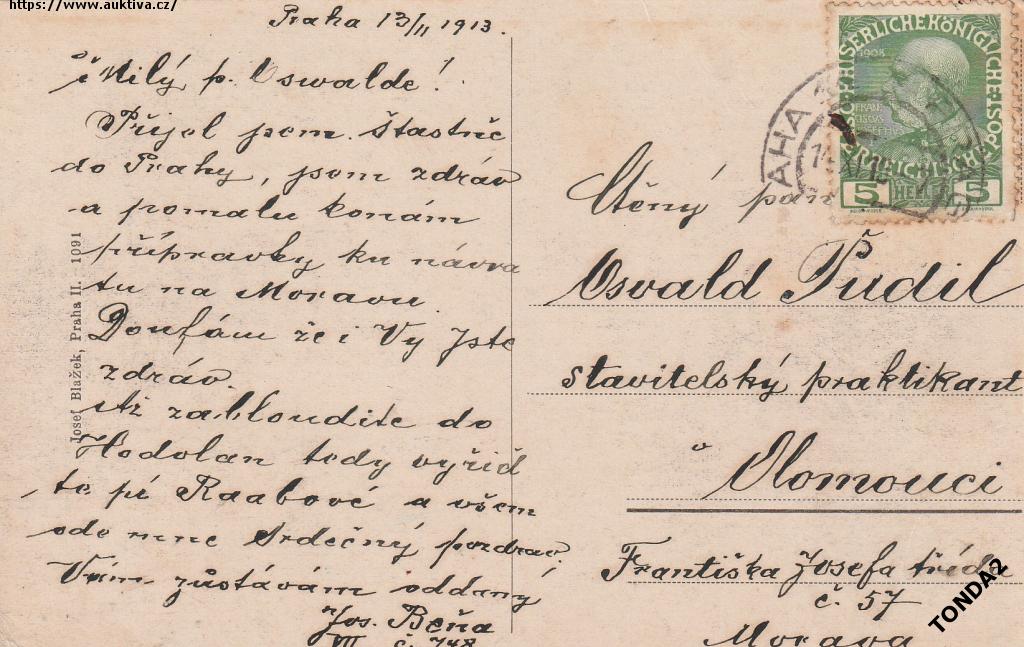 https://www.auktiva.cz/
Praha 13/II 1913.
Milý p. Oswalde!
Přijel jsem šťastně
do Prahy, jsem zdráv
a pomalu konám
přípravky ku návra
tu na Moravu
Doufám že i Vy jste
zdráv.
Až zabloudíte do
Hodolan tedy vyřiď
te pí Raabové a všem
ode mne srdečný pozdrav
zůstávám oddaný
Jos. Beňa
VII č. 748
Josef Blažek, Praha II. 1091
Ctěný pan
Osvald Pudil
stavitelský praktikant
v Olomouci
Františka Josefa třída
č. 57
Morava
KAISERLICHE KÖNIGLICHE ÖST. POST
1908
FRAN
CISCUS
JOSEPHUS
5 HELLER 5
TONDA2